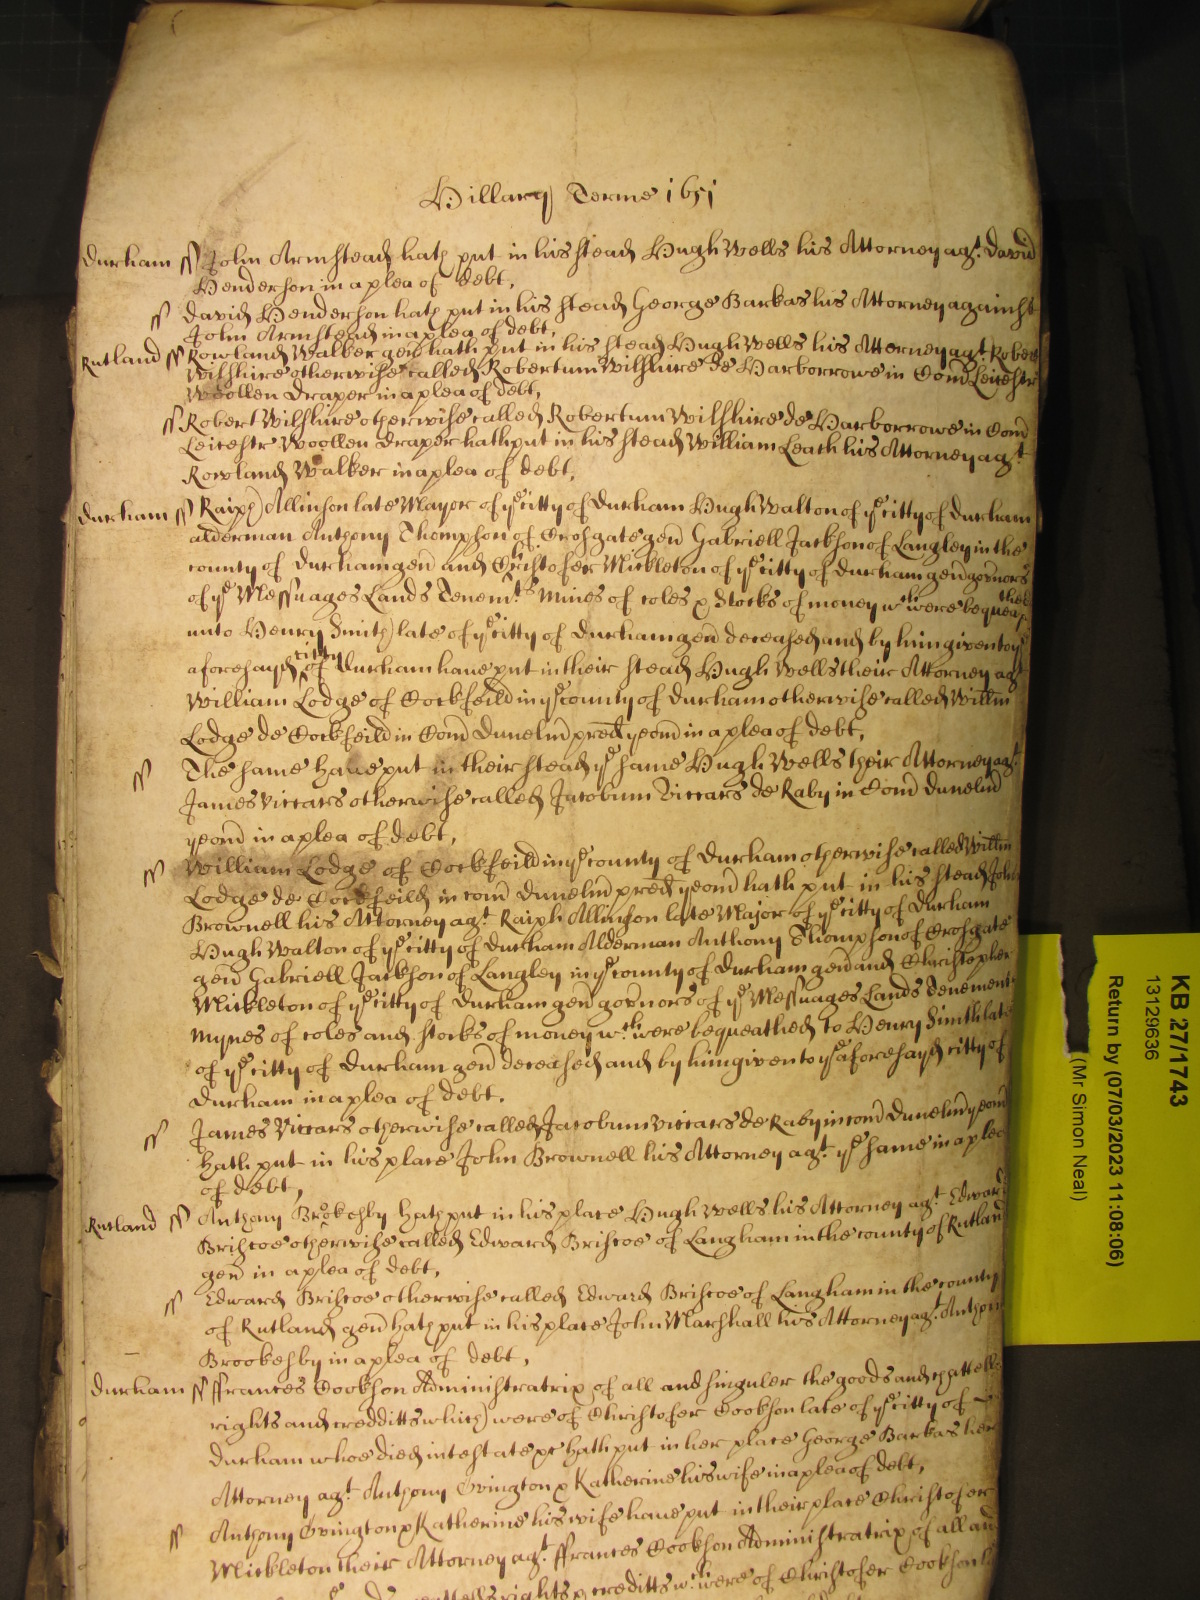 Hillary Terme 1651
Durham ss John Armstead hath put in his stead Hugh Wells his Attorney agt. David
Henderson in a plea of debt,
ss David Henderson hath put in his stead George Barkas his Attorney against
John Armstead in a plea of debt,
Rutland ss Rowland Walker gen hath put in his stead Hugh Wells his Attorney agt. Robert
Wilshire otherwise called Robertum Wilshire de Harborrowe in Com Leicestr
Woollen draper in a plea of debt,
ss Robert Wilshire otherwise called Robertum Wilshire de Harborrowe in Com
Leicestr Woollen draper hath put in his stead William Leach his Attorney agt
Rowland Walker in a plea of debt,
Durham ss Raiph Allinson late Mayor of ye citty of Durham Hugh Walton of ye citty of Durham
alderman Anthony Thompson of Crosgate gen Gabriell Jackson of Langley in the
county of Durham gen and Christofer Mickleton of ye citty of Durham gen governors
of ye Messuages Lands Tenemts Mines of coles & Stocks of money wch were bequeathed
unto Henry Smith late of ye citty of Durham gen deceased and by him given to ye
aforesayd citty of Durham have put in their stead Hugh Wells their Attorney agt
William Lodge of Cockfeild in ye county of Durham otherwise called Willm
Lodge de Cockfeild in Com Dunelm pred yeom in a plea of debt,
ss The same have put in their stead ye same Hugh Wells their Attorney agt.
James Viccars otherwise called Jacobum Viccars de Raby in Com Dunelm
yeom in a plea of debt,
ss William Lodge of Cockfeild in ye county of Durham otherwise called Willm
Lodge de Cockefeild in com Dunelm pred yeom hath put in his stead John
Brownell his Attorney agt. Raiph Allinson late Major of ye citty of Durham
Hugh Walton of ye citty of Durham Alderman Anthony Thompson of Crosgate
gen Gabriell Jackson of Langley in ye county of Durham gen and Christopher
Mickleton of ye citty of Durham gen governors of ye Messuages Lands Tenements
Mynes of coles and stocks of money wch were bequeathed to Henry Smith late
of ye citty of Durham gen deceased and by him given to ye aforesayd citty of
Durham in a plea of debt.
ss James Viccars otherwise called Jacobum Viccars de Raby in com Dunelm yeom
hath put in his place John Brownell his Attorney agt. ye same in a plea
of debt,
Rutland ss Anthony Brokesby hath put in his place Hugh Wells his Attorney agt Edward
Briscoe otherwise called Edward Briscoe of Langham in the county of Rutland
gen in a plea of debt,
ss Edward Briscoe otherwise called Edward Briscoe of Langham in the county
of Rutland gen hath put in his place John Marshall his Attorney agt. Anthony
Brookesby in a plea of debt,
Durham ss ffrances Cookson Administratrix of all and singuler the goods and chattells
rights and credditts which were of Christofer Cookson late of ye citty of
Durham whoe died intestate &c hath put in her place George Barkas her
Attorney agt. Anthony Ovington & Katherine his wife in a plea of debt,
ss Anthony Ovington & Katherine his wife have put in their place Christofer
Mickleton their Attorney agt. ffrances Cookson Administratrix of all and
rights & creditts wch were of Christofer Cookson
KB 27/1743
13129636
Return by (07/03/2023 11:08:06)
(Mr Simon Neal)